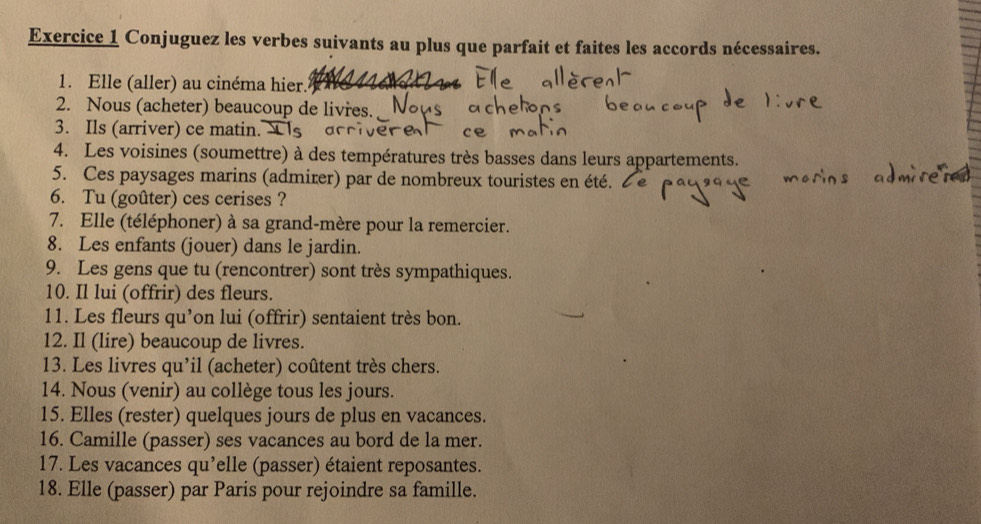 Exercice 1 Conjuguez les verbes suivants au plus que parfait et faites les accords nécessaires.
1. Elle (aller) au cinéma hier. Elle allèrent
2. Nous (acheter) beaucoup de livres. Nous achetons beaucoup de livre
3. Ils (arriver) ce matin. Ils arrivèrent ce matin
4. Les voisines (soumettre) à des températures très basses dans leurs appartements.
5. Ces paysages marins (admirer) par de nombreux touristes en été. Ce paysage marins
6. Tu (goûter) ces cerises ?
7. Elle (téléphoner) à sa grand-mère pour la remercier.
8. Les enfants (jouer) dans le jardin.
9. Les gens que tu (rencontrer) sont très sympathiques.
10. Il lui (offrir) des fleurs.
11. Les fleurs qu’on lui (offrir) sentaient très bon.
12. Il (lire) beaucoup de livres.
13. Les livres qu’il (acheter) coûtent très chers.
14. Nous (venir) au collège tous les jours.
15. Elles (rester) quelques jours de plus en vacances.
16. Camille (passer) ses vacances au bord de la mer.
17. Les vacances qu’elle (passer) étaient reposantes.
18. Elle (passer) par Paris pour rejoindre sa famille.